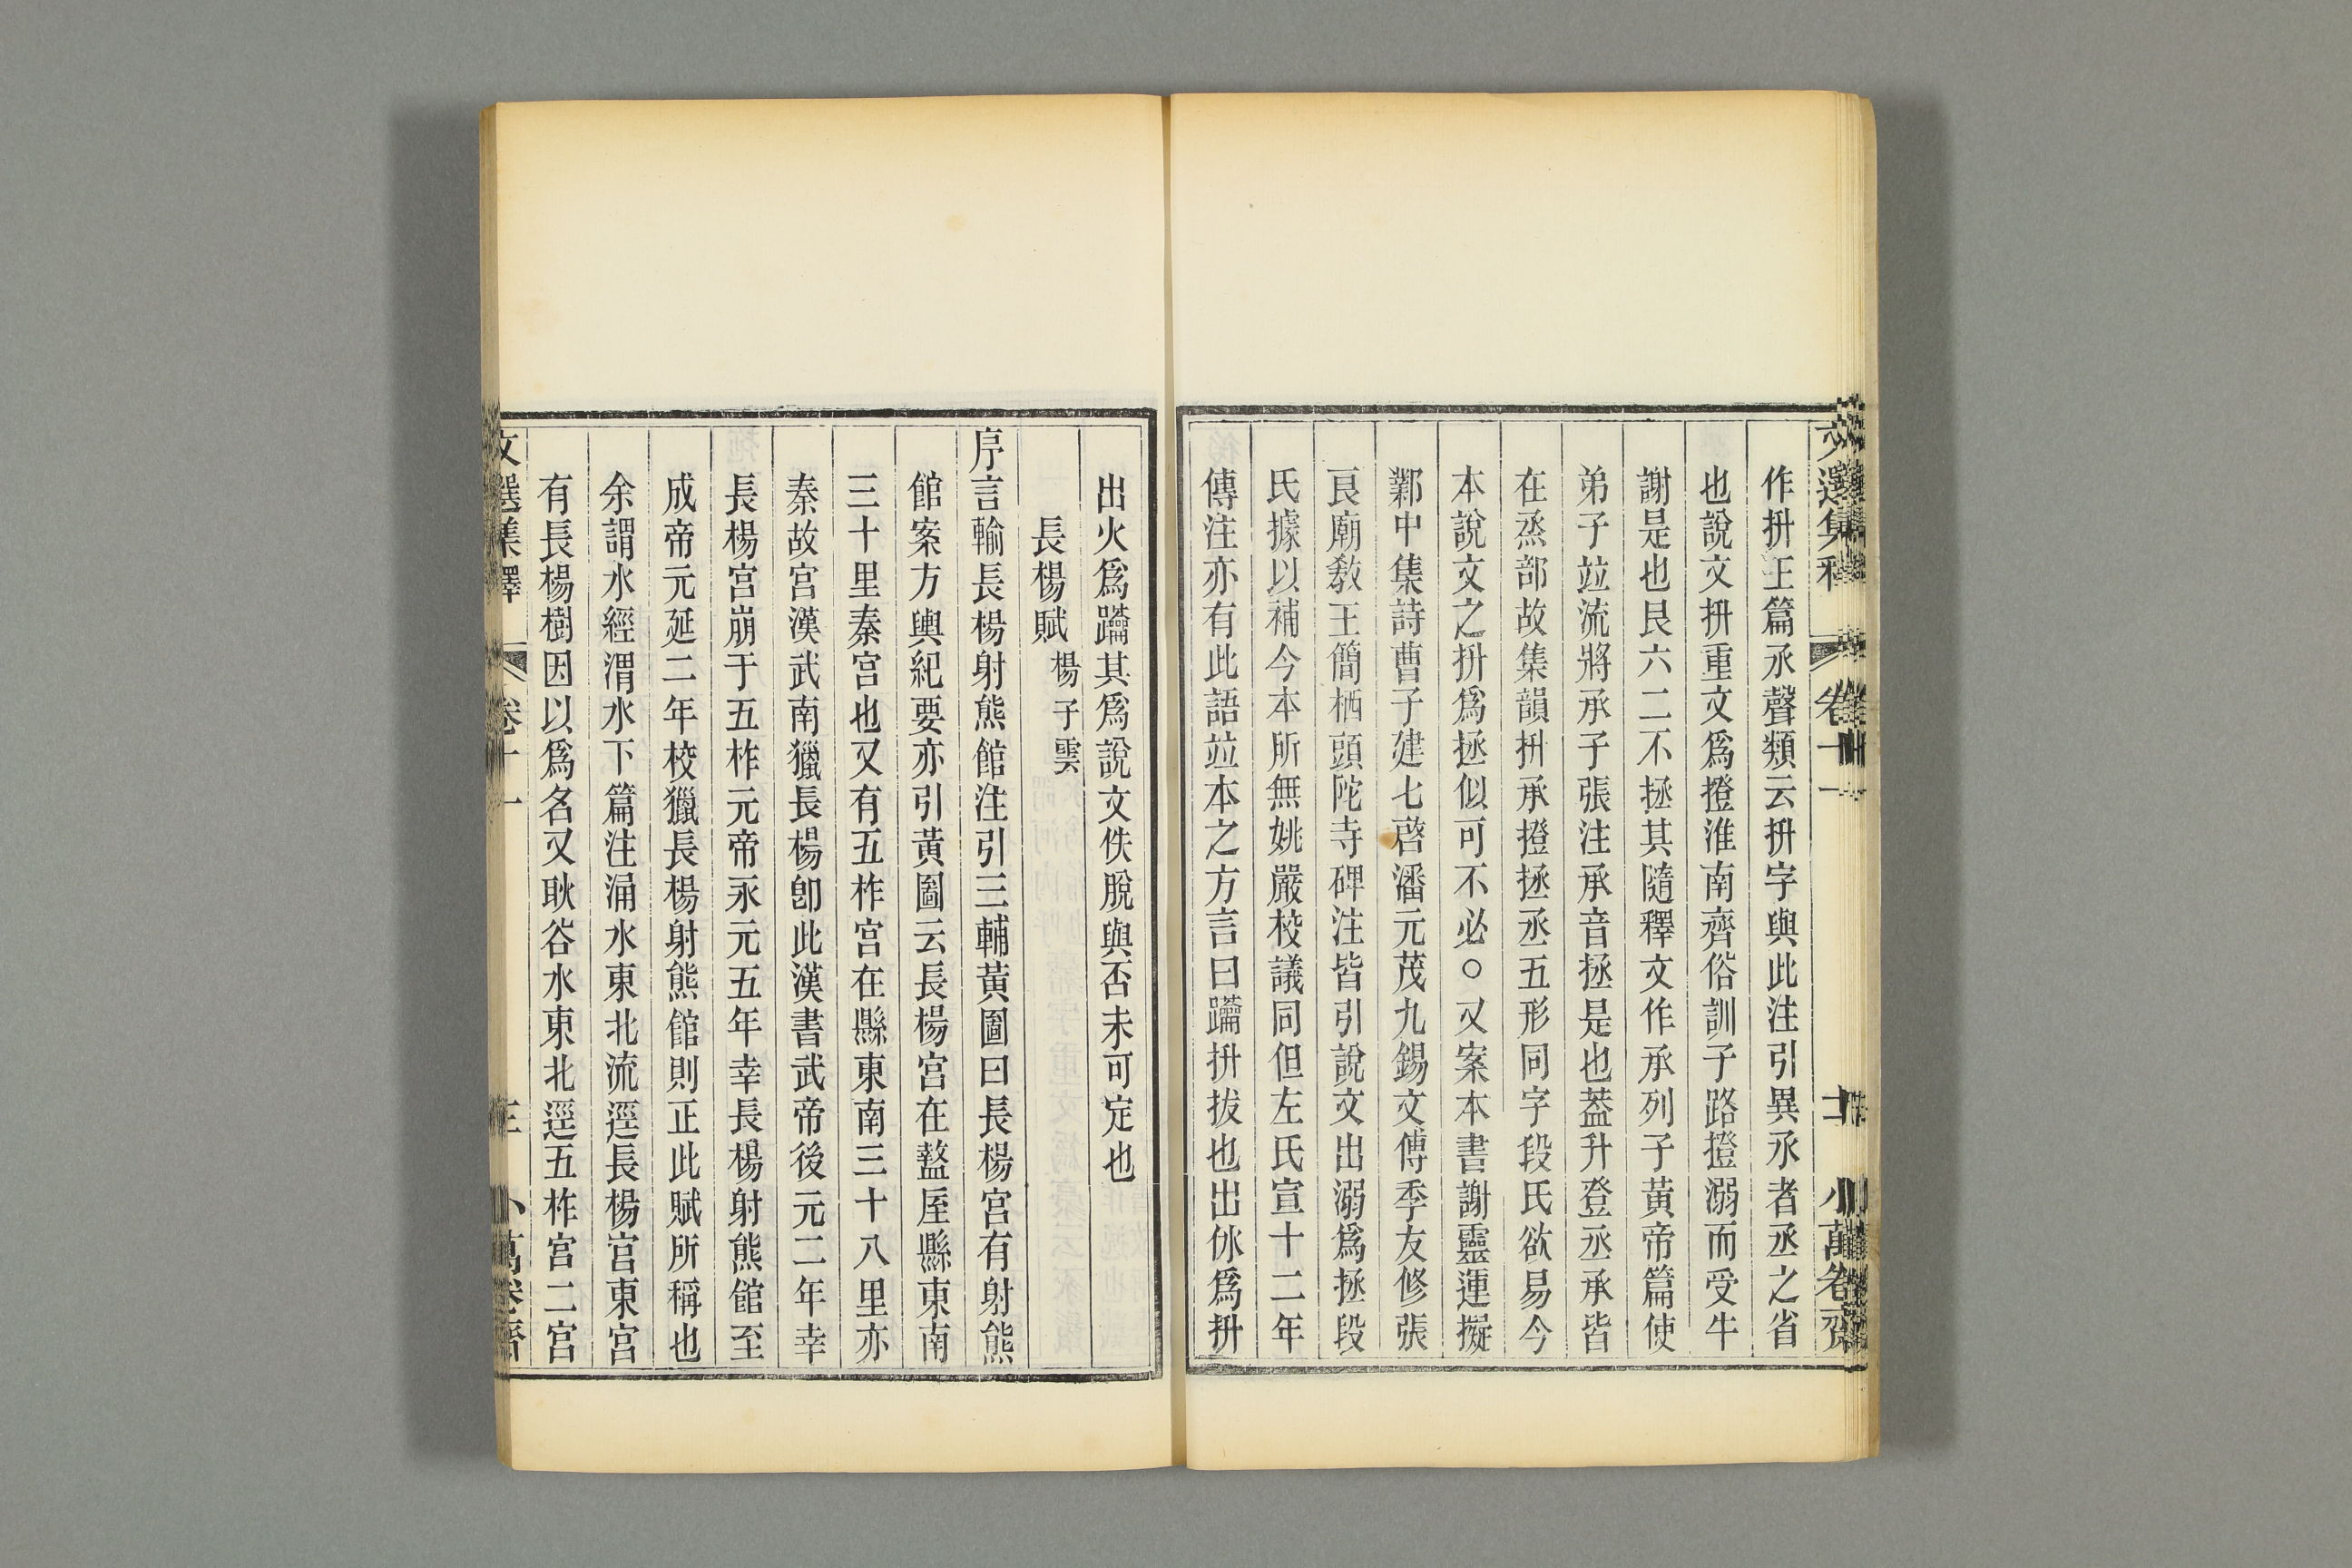 文選集釋 卷十一 十二 小萬卷齋
作抍玉篇氶聲類云抍字與此注引異氶者丞之省
也說文抍重文爲撜淮南齊俗訓子路撜溺而受牛
謝是也艮六二不拯其隨釋文作承列子黃帝篇使
弟子竝流將承子張注承音拯是也蓋升登丞承皆
在烝部故集韻抍承撜拯丞五形同字段氏欲易今
本說文之抍爲拯似可不必○又案本書謝靈運擬
鄴中集詩曹子建七啓潘元茂九錫文傅季友修張
良廟敎王簡栖頭陀寺碑注皆引說文出溺爲拯段
氏據以補今本所無姚嚴校議同但左氏宣十二年
傳注亦有此語竝本之方言曰䠯抍拔也出休爲抍
出火爲䠯其爲說文佚脫與否未可定也
長楊賦 楊子雲
序言輸長楊射熊館注引三輔黃圖曰長楊宮有射熊
館案方輿紀要亦引黃圖云長楊宮在盩厔縣東南
三十里秦宮也又有五柞宮在縣東南三十八里亦
秦故宮漢武南獵長楊卽此漢書武帝後元二年幸
長楊宮崩于五柞元帝永元五年幸長楊射熊館至
成帝元延二年校獵長楊射熊館則正此賦所稱也
余謂水經渭水下篇注涌水東北流逕長楊宮東宮
有長楊樹因以爲名又耿谷水東北逕五柞宮二宮
文選集釋 卷十一 三 小萬卷齋